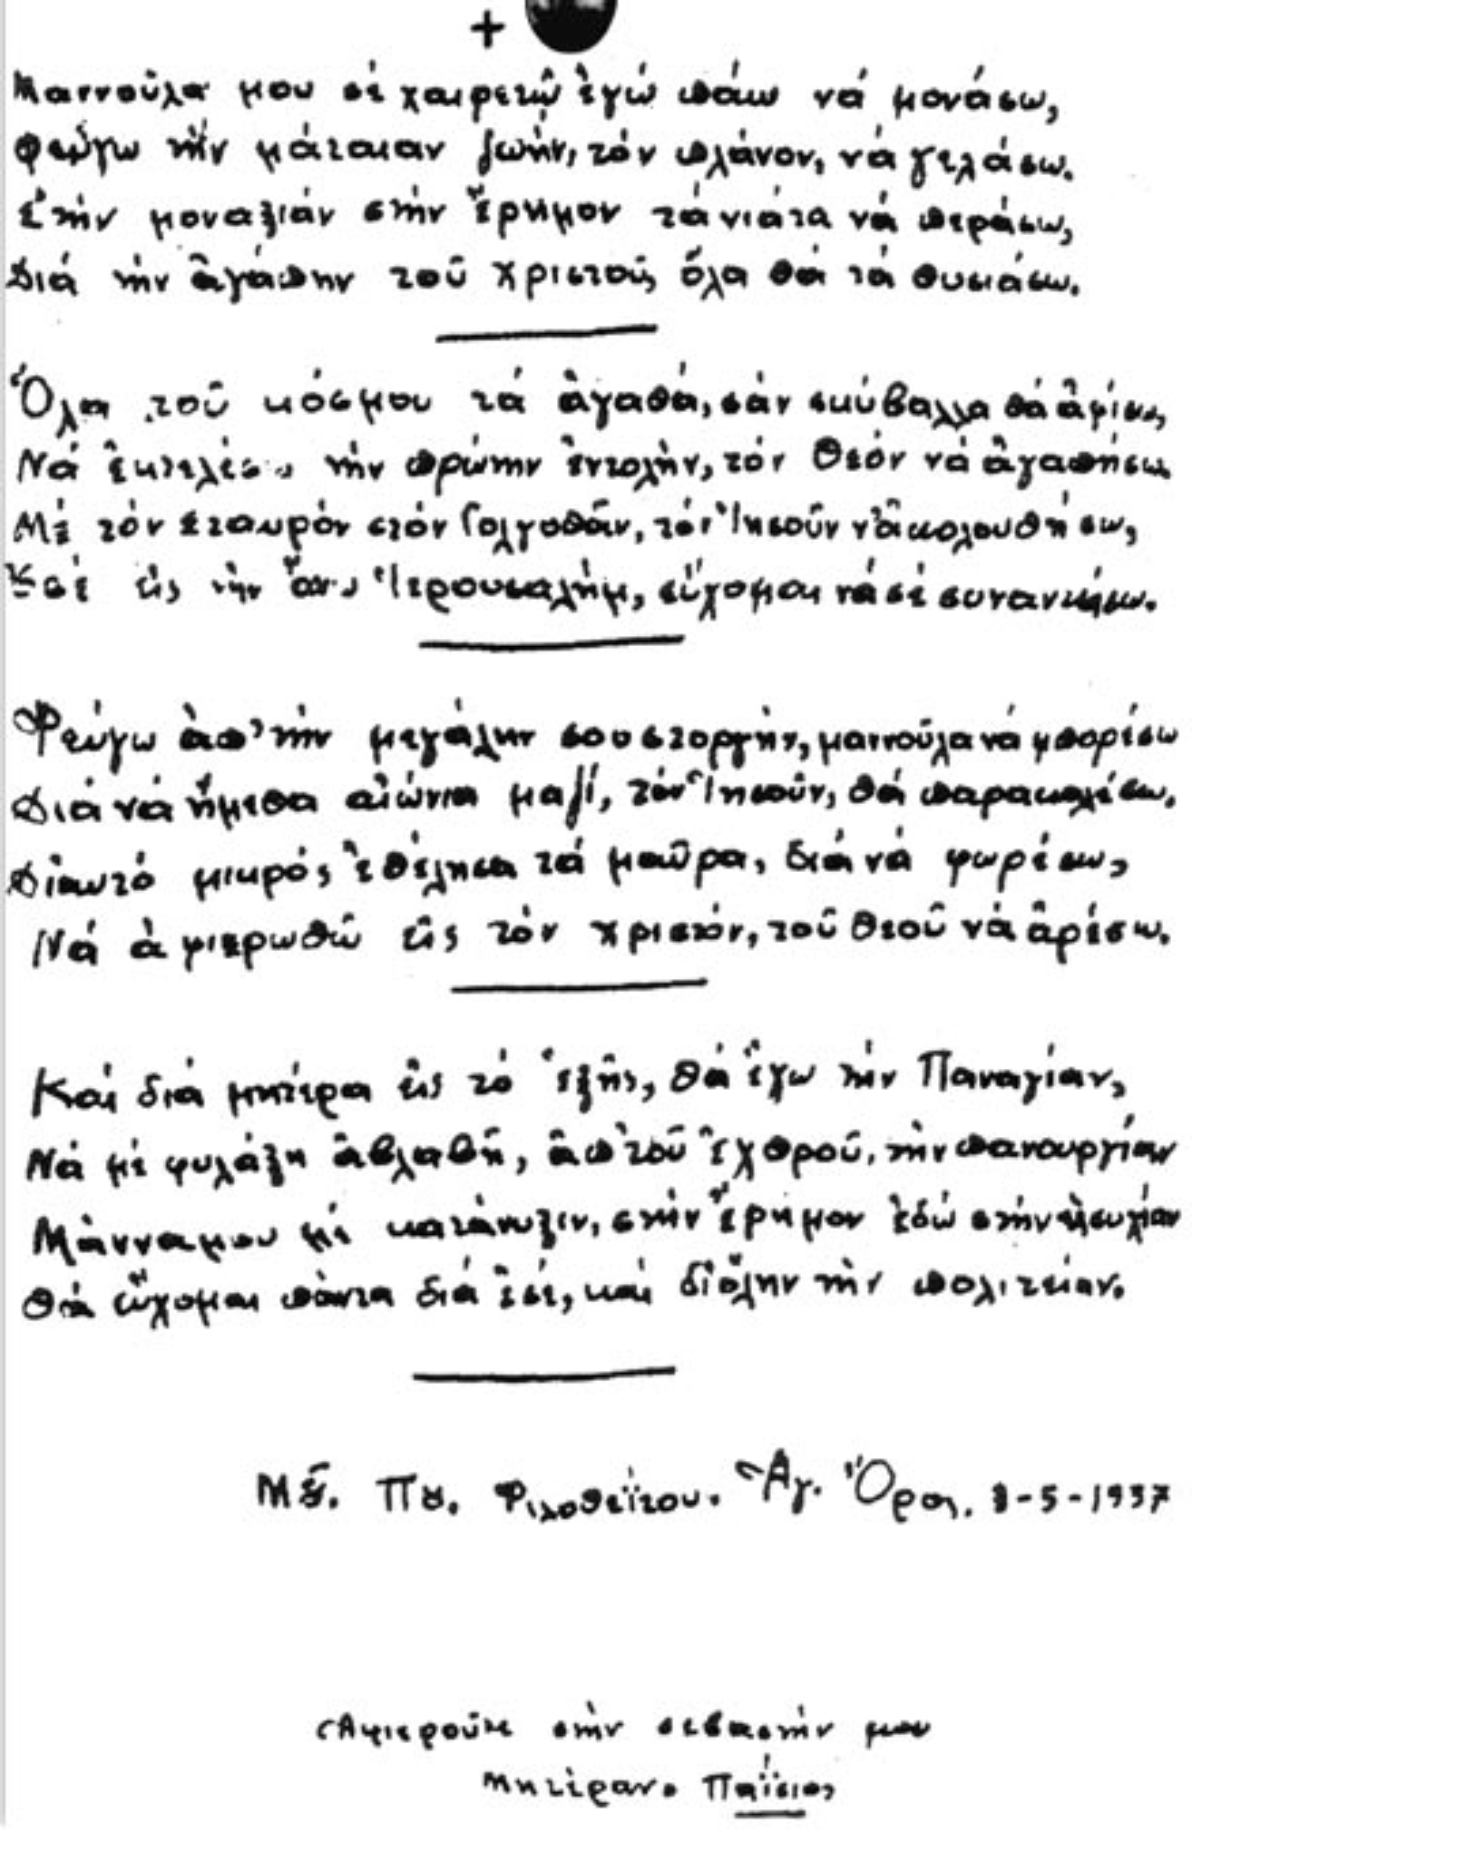 +
Μαννούλα μου σέ χαιρετῶ ἐγώ πάω νά μονάσω,
Φεύγω τήν μάταιαν ζωήν, τόν πλάνον, νά γελάσω.
Στήν μοναξιάν στήν ἔρημον τά νιάτα νά περάσω,
Διά τήν ἀγάπην τοῦ Χριστοῦ, ὅλα θά τά θυσιάσω.
Ὅλα τοῦ κόσμου τά ἀγαθά, σάν σκύβαλλα θά ἀφίσω,
Νά ἐκτελέσω τήν πρώτην ἐντολήν, τόν Θεόν νά ἀγαπήσω
Μέ τόν Σταυρόν στόν Γολγοθᾶν, τόν Ἰησοῦν ν'ἀκολουθήσω,
Καί εἰς τήν ἄνω Ἱερουσαλήμ, εὔχομαι νά σέ συναντήσω.
Φεύγω ἀπ' τήν μεγάλην σου στοργήν, μαννούλα νά μπορέσω
Διά νά ἤμεθα αἰώνια μαζί, τόν Ἰησοῦν, θά παρακαλέσω.
Δἰαυτό μικρός ἐθέλησα τά μαῦρα, διά νά φορέσω,
Νά ἀφιερωθῶ εἰς τόν Χριστόν, τοῦ Θεοῦ νά ἀρέσω.
Καί διά μητέρα εἰς τό ἑξῆς, θά ἔχω τήν Παναγίαν,
Νά μέ φυλάξη ἀβλαβῆ, ἀπ' τοῦ ἐχθροῦ, τήν πανουργίαν
Μάννα μου μέ κατάνυξιν, στήν ἔρημον ἐδῶ στήν ἡσυχίαν
Θά εὔχομαι πάντα διά ἐσέ, καί δἰ ὅλην τήν πολιτείαν.
Φιλοθεΐτου. Ἁγ. Ὄρος. 3-5-1957
(Ἀφιεροῦται στήν σεβαστήν μου
Μητέραν. Παΐσιος